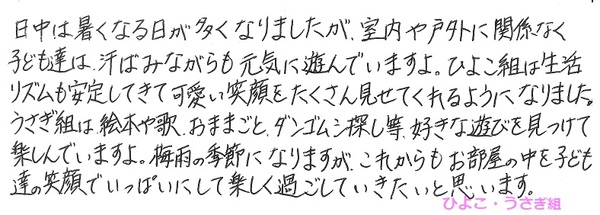 日中は暑くなる日が多くなりましたが、室内や戸外に関係なく
子ども達は、汗ばみながらも元気に遊んでいますよ。ひよこ組は生活
リズムも安定してきて可愛い笑顔をたくさん見せてくれるようになりました。
うさぎ組は絵本や歌、おままごと、ダンゴムシ探し等、好きな遊びを見つけて
楽しんでいますよ。梅雨の季節になりますが、これからもお部屋の中を子ども
達の笑顔でいっぱいにして楽しく過ごしていきたいと思います。
ひよこ・うさぎ組